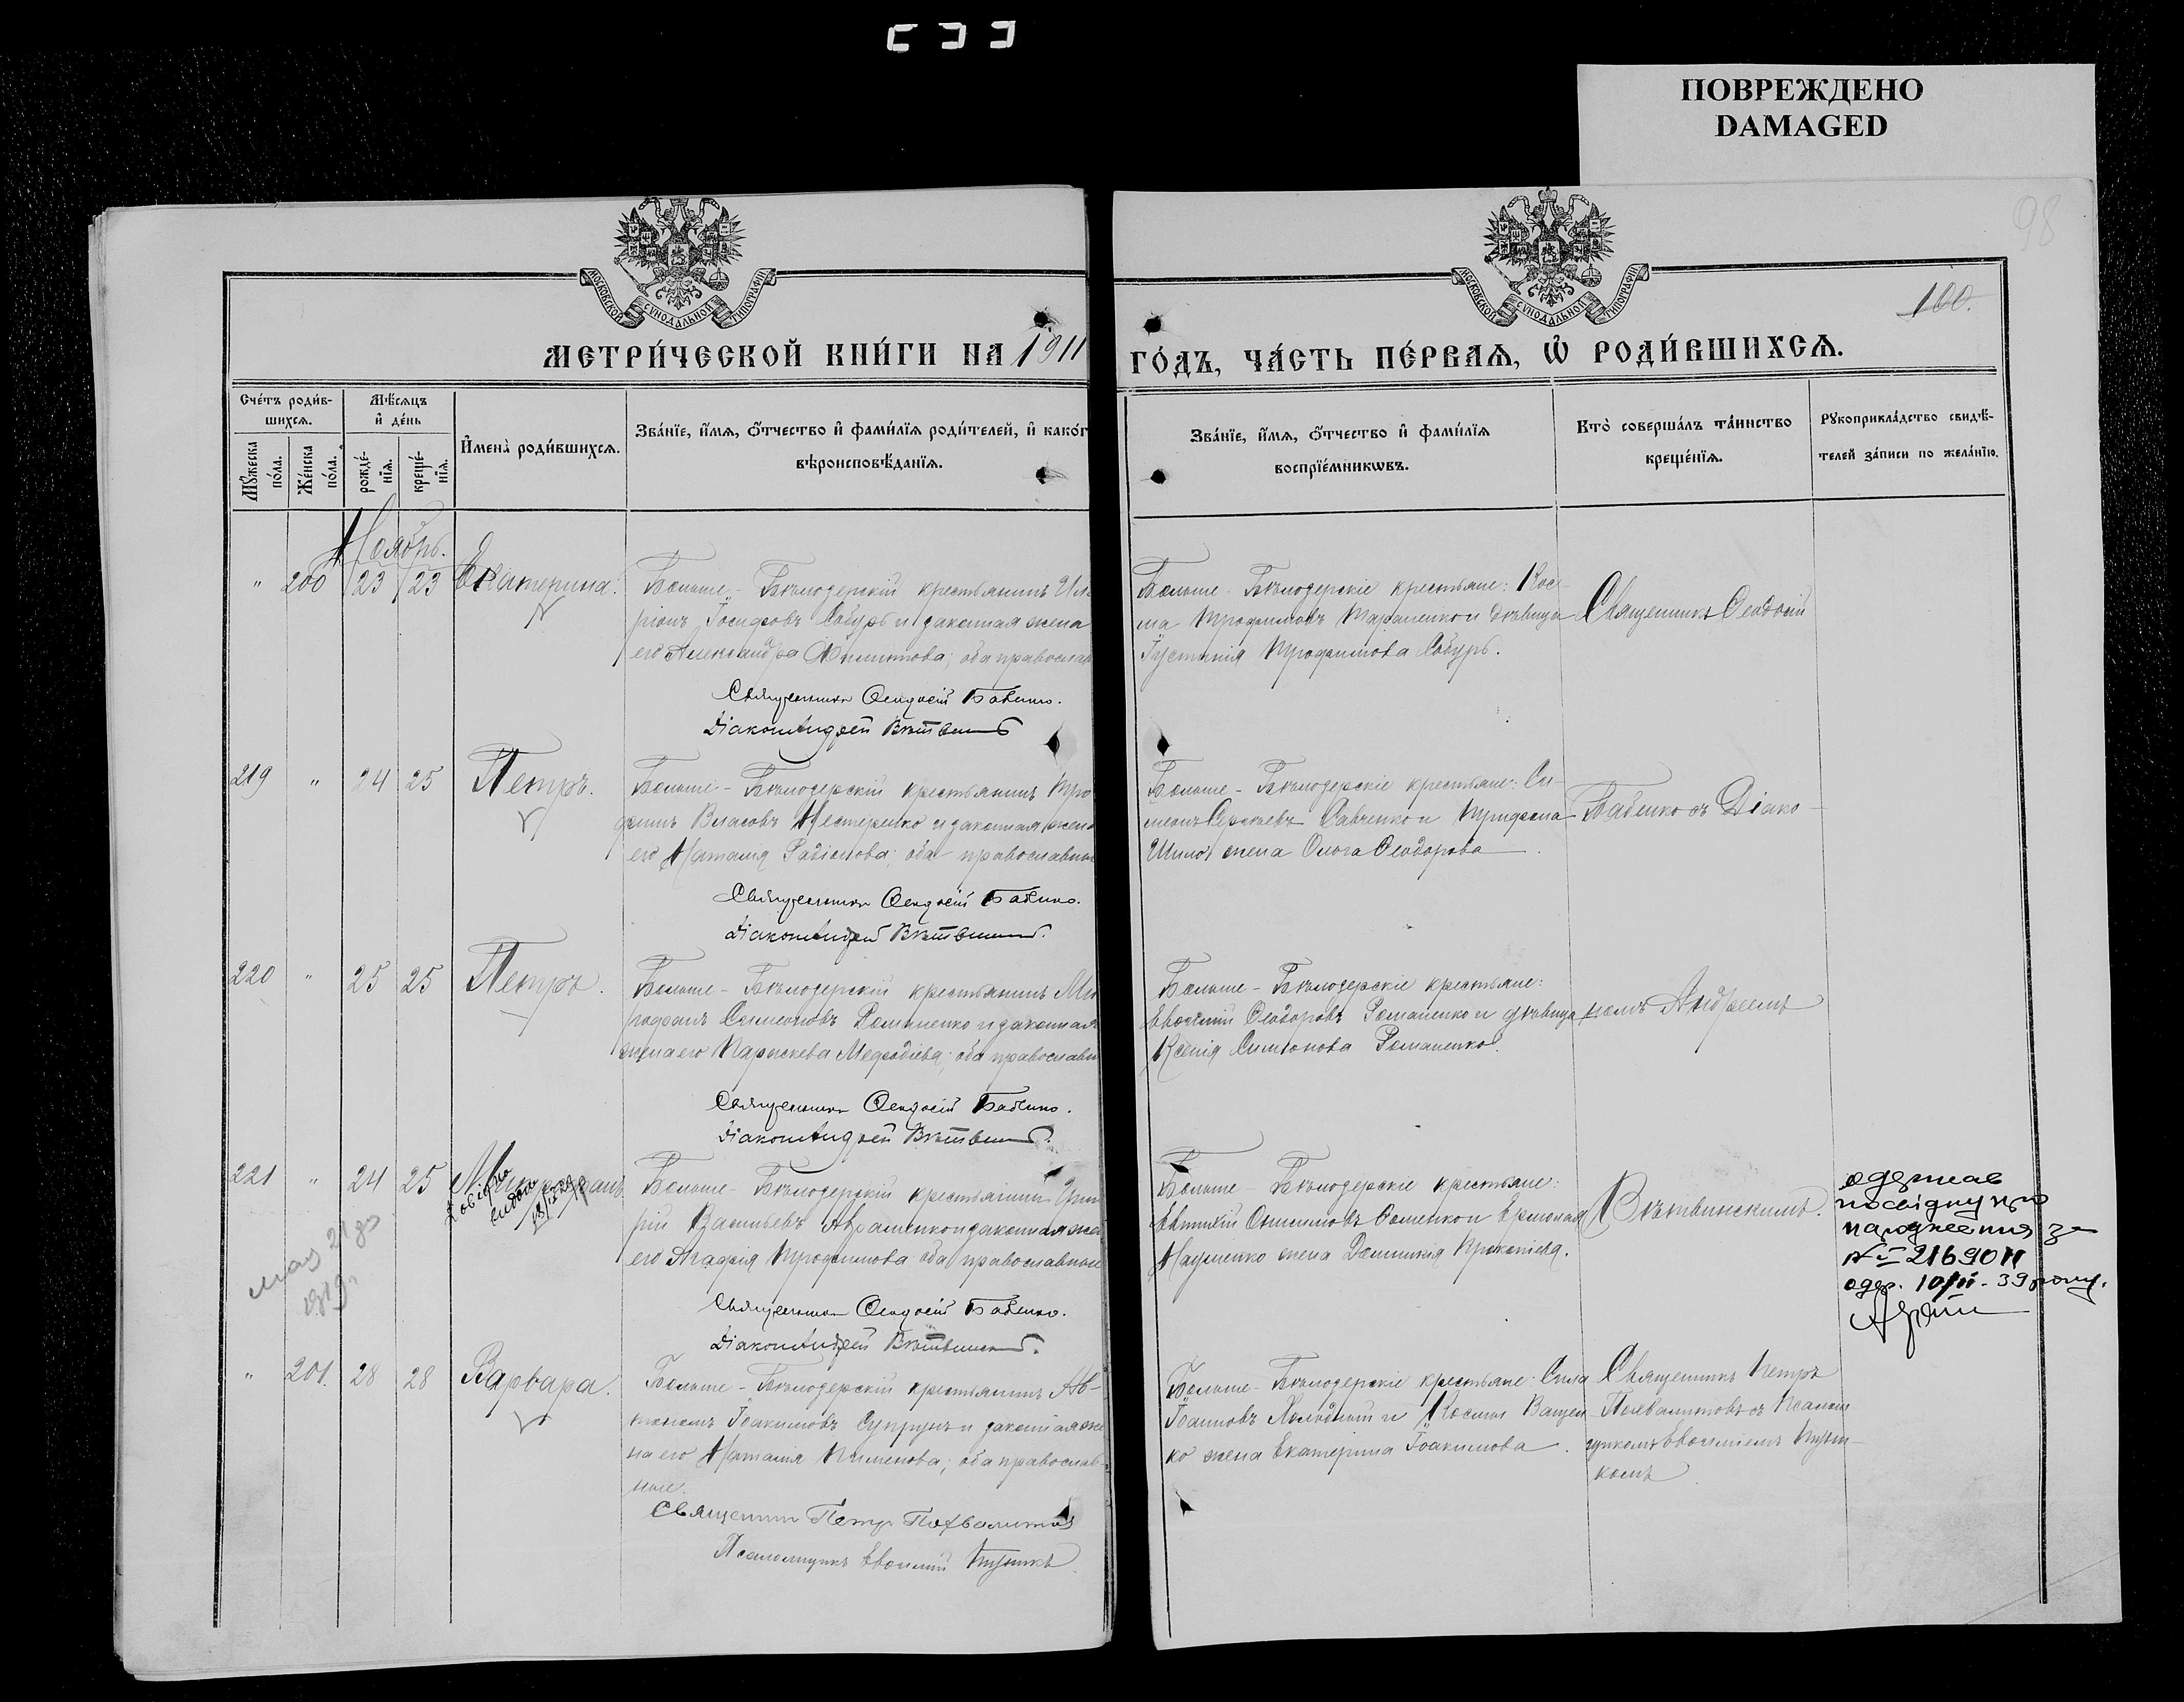 ПОВРЕЖДЕНО
DAMAGED
98
100.
МОСКОВСКОЙ СУНОДАЛЬНОЙ ТИПОГРАФІИ
МОСКОВСКОЙ СУНОДАЛЬНОЙ ТИПОГРАФІИ
МЕТРИ́ЧЕСКОЙ КНИ́ГИ НА 1911
ГО́ДЪ, ЧА́СТЬ ПЕ́РВАѦ, Ѽ РОДИ́ВШИХСѦ.
Сче́тъ роди́в-
шихсѧ.
Мꙋ́жеска по́ла.
Же́нска по́ла.
Мѣ́сѧцъ
и҆ де́нь
рожде́-нїѧ.
креще́-нїѧ.
И҆мена̀ роди́вшихсѧ.
Зва́нїе, и҆́мѧ, ѻ҆́тчество и҆ фами́лїѧ роди́телей, и҆ како́г
вѣроисповѣ́данїѧ.
Зва́нїе, и҆́мѧ, ѻ҆́тчество и҆ фами́лїѧ
воспрїе́мникѡвъ.
Кто̀ соверша́лъ та́инство
креще́нїѧ.
Рꙋкоприкла́дство свидѣ́-
телей за́писи по жела́нїю.
Ноябрь.
" 200 23 23 Екатерина.
Больше-Бѣлозерскій крестьянинъ Ила
ріонъ Іосифовъ Собурь и законная жена
его Александра Филиппова; оба православ
Священникъ Ѳеодосій Бабенко.
Діаконъ Андрей Вѣтвинскій
Больше-Бѣлозерскіе крестьяне: Кос-
ма Трофимовъ Тараненко и дѣвица
Іустинія Трофимова Собурь.
Священникъ Ѳеодосій
219 " 24 25 Петръ.
Больше-Бѣлозерскій крестьянинъ Тро
фимъ Власовъ Нестеренко и законная жена
его Наталія Родіонова; оба православные
Священникъ Ѳеодосій Бабенко.
Діаконъ Андрей Вѣтвинскій.
Больше-Бѣлозерскіе крестьяне: Си-
меонъ Сергіевъ Савченко и Трифона
жена Ольга Ѳеодорова
Бабенко съ Діако-
220 " 25 25 Петръ.
Больше-Бѣлозерскій крестьянинъ Ми
трофанъ Симеоновъ Романенко и законная
жена его Параскева Меѳодіева; оба православн
Священникъ Ѳеодосій Бабенко.
Діаконъ Андрей Вѣтвинскій.
Больше-Бѣлозерскіе крестьяне:
Евѳимій Ѳеодоровъ Романенко и дѣвица
Ксенія Симеонова Романенко.
номъ Андреемъ
221 " 24 25 Митрофанъ
Больше-Бѣлозерскій крестьянинъ Григо
рій Васильевъ Авраменко и законная жена
его Агафія Трофимова оба православные
Священникъ Ѳеодосій Бабенко.
Діаконъ Андрей Вѣтвинскій.
Больше-Бѣлозерскіе крестьяне:
Евтихій Онисимовъ Фоменко и Ермолая
Науменко жена Домникія Прокопіева.
Вѣтвинскимъ.
одержав
посвідку про
народження за
№ 216901
одер. 10/II-39 року.
" 201. 28 28 Варвара.
Больше-Бѣлозерскій крестьянинъ Ав-
тономъ Іоакимовъ Супрунъ и законная же
на его Наталія Пименова; оба православ-
ные.
Священникъ Петръ Похвалитовъ
Псаломщикъ Евѳимій
Больше-Бѣлозерскіе крестьяне: Сила
Іоанновъ Холодный и Космы Ващен-
ко жена Екатерина Іоакимова.
Священникъ Петръ
Похвалитовъ съ Псалом-
щикомъ Евѳиміемъ
комъ